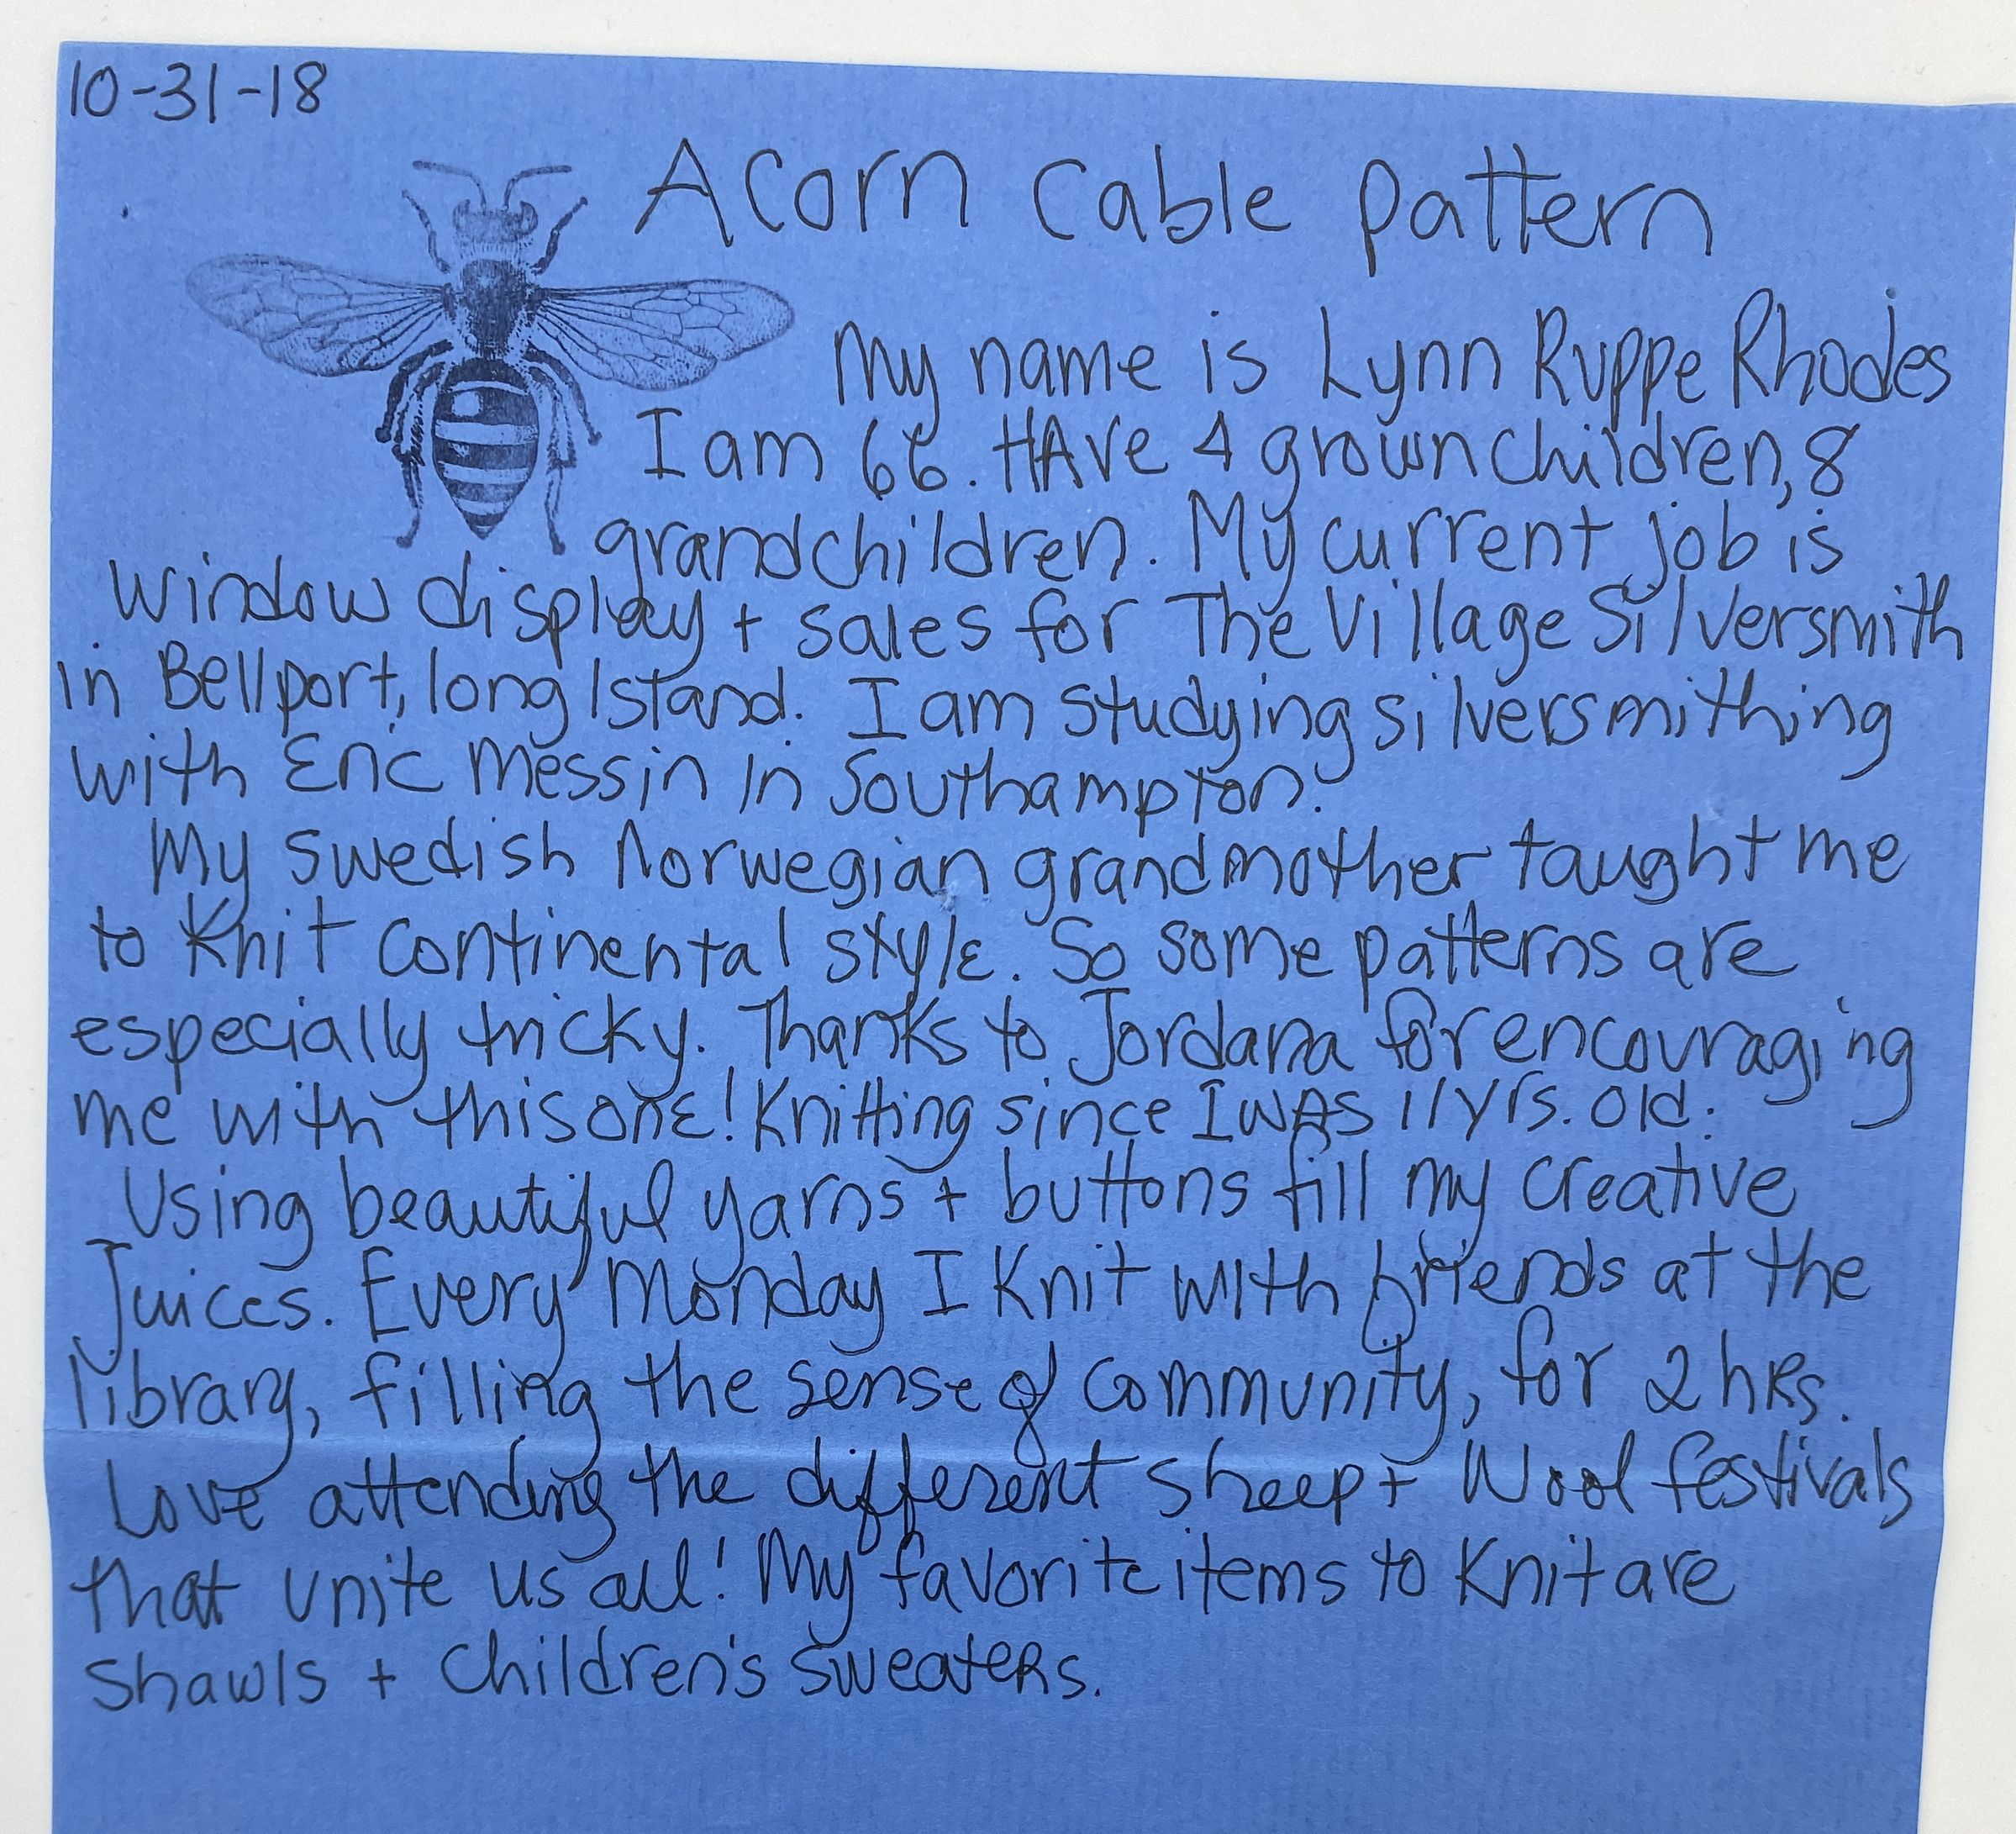 10-31-18
Acorn Cable pattern
My name is Lynn Ruppe Rhodes
I am 66. HAve 4 grown children, 8
grandchildren. My current job is
window display + sales for The Village Silversmith
in Bellport, long Island. I am studying silversmithing
with Eric Messin in Southampton.
My Swedish Norwegian grandmother taught me
to Knit Continental style. So some patterns are
especially tricky. Thanks to Jordana for encouraging
me with this one! Knitting since I wAS 11 yrs. old.
Using beautiful yarns + buttons fill my creative
Juices. Every Monday I Knit with friends at the
library, filling the sense of Community, for 2 hRs.
Love attending the different sheep + Wool festivals
that unite us all! My favorite items to Knit are
Shawls + Children's sweateRs.